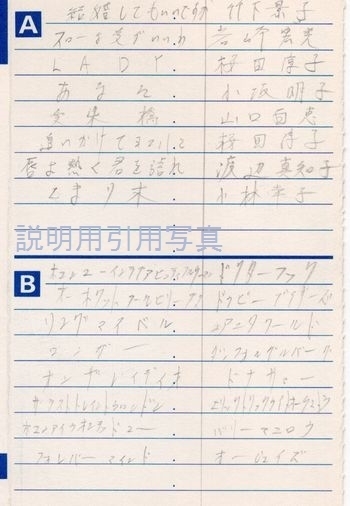 A
結婚してもいいですか 竹下景子
スローな愛がいいわ 岩崎宏美
LADY 桜田淳子
あなた 小坂明子
愛染橋 山口百恵
追いかけてヨコハマ 桜田淳子
唇よ熱く君を語れ 渡辺真知子
とまり木 小林幸子
説明用引用写真
B
ドクターフック
ドゥビーブラザーズ
リングマイベル アニタワールド
ロンガー ダンフォーゲルバーグ
オンザレイディオ ドナサマー
ザラストトレイントゥロンドン
ホエンアイウォンテッドユー バリーマニロウ
フォーエバーマインド オージェイズ